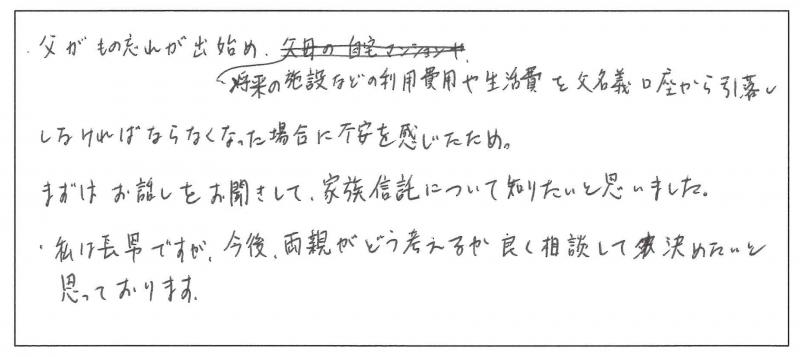 ・父がもの忘れが出始め、父母の自宅マンションや、
将来の施設などの利用費用や生活費を父名義口座から引落し
しなければならなくなった場合に不安を感じたため。
まずはお話しをお聞きして、家族信託について知りたいと思いました。
・私は長男ですが、今後、両親がどう考えるか良く相談して決めたいと
思っております。